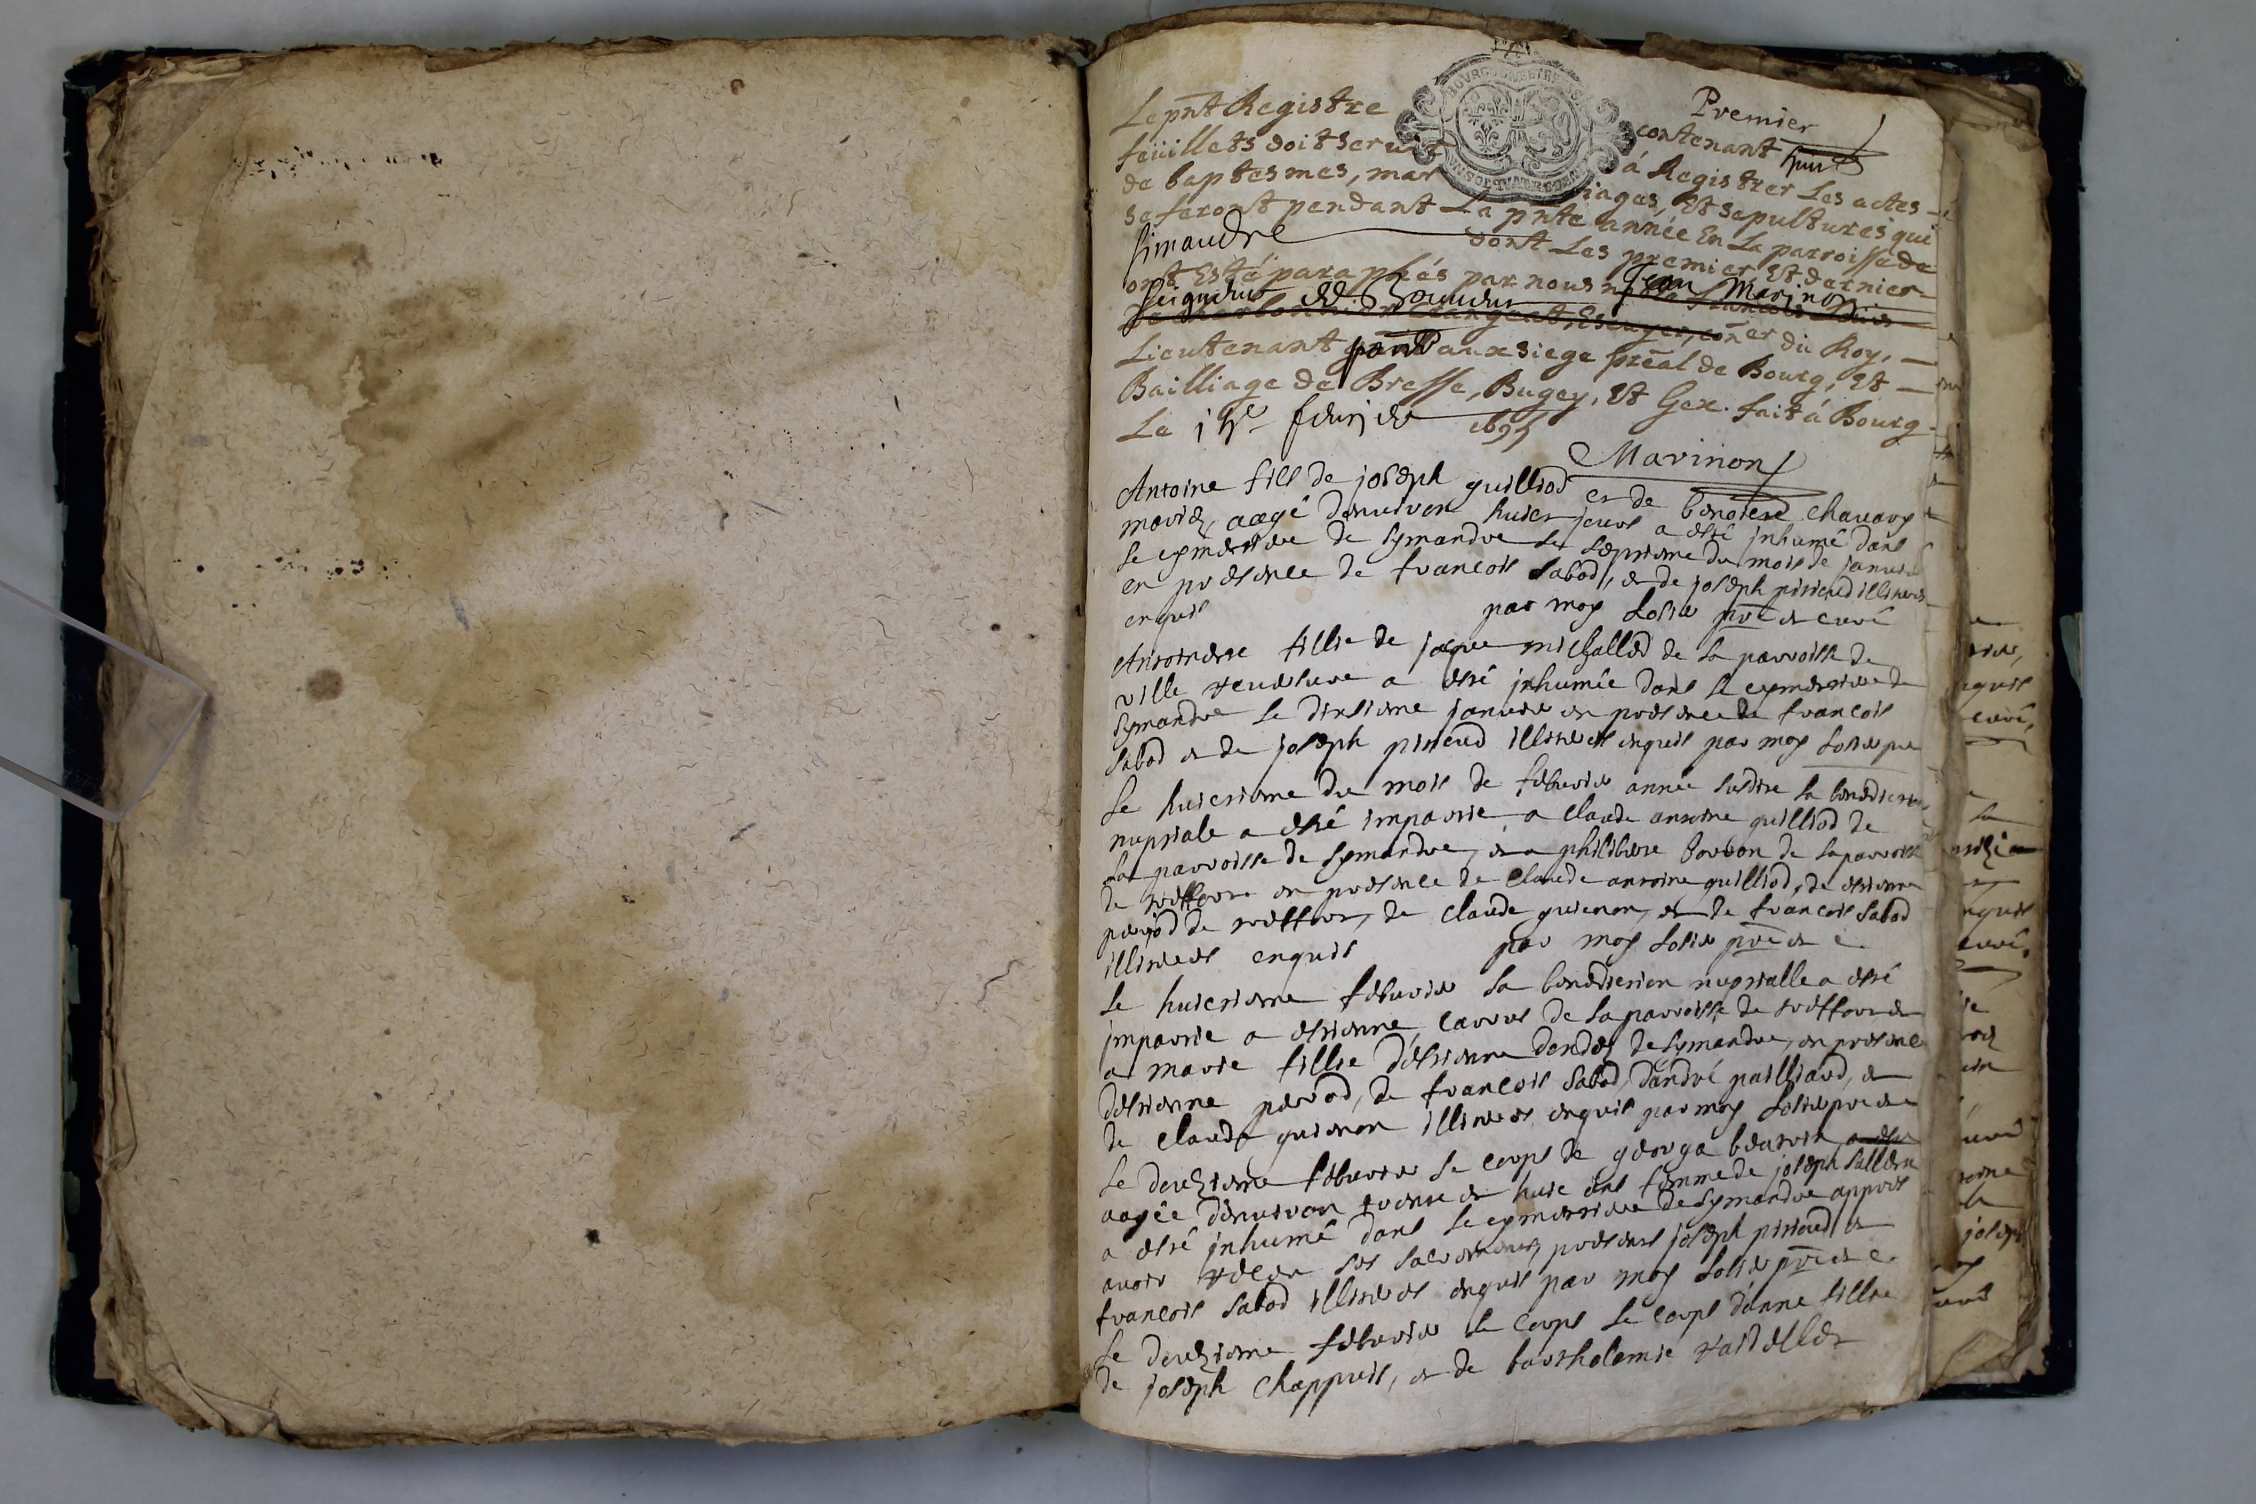 Premier
Le pñt Registre contenant huit
feüillets doit servir á Registrer Les actes
de baptesmes, mariages, Et sepultures qui
se feront pendant La pñte année En La parroisse de
Simandre dont Les premier Et dernier
ont Esté paraphés par nous Jean Marinon
seigneur
Lieutenant aux siege pñal de Bourg, Et
Bailliage de Bresse, Bugey, Et Gex. fait á Bourg
Le
Marinon
Antoine fils de joseph guilliod et de
maries, aagé denviron huict jours a esté inhumé dans
le cymettiere de symandre le septieme du mois de janvier
en presence de francois sabod, et de joseph pitioud illiteres
enquis par moy pre et curé
Antoinette fillie de jaque michallod de la parroisse de
ville reversure a esté inhumée dans le cymettiere de
symandre le dixsieme janvier en presence de francois
sabod et de joseph pitioud illiteres enquis par moy
Le huictieme du mois de febvrier année susdite la benediction
nuptiale a esté impartie a claude antoine guilliod de
la parroisse de symandre, et a philiberte de la parroisse
de en presence de claude antoine guilliod, de estienne
de de claude guienon, et de francois sabod
illiteres enquis par moy pre et c.
Le huictieme febvrier la benediction nuptialle a esté
impartie a estienne de la parroisse de et
a marie fillie d'estienne de symandre, en presence
d'estienne de francois sabod, d'andré pailliard, et
de claude guienon illiteres enquis par moy pre et c
Le deuzieme febvrier le corps de george
aagée denviron trente et huict ans femme de joseph
a esté inhumé dans le cymettiere de symandre appres
avoir receu ses sacrements presents joseph pitioud et
francois sabod illiteres enquis par moy pre et c.
Le deuzieme febvrier le corps le corps danne fillie
de joseph chappuis, et de barthelemie